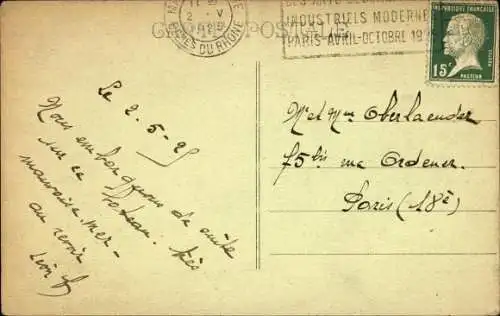 CARTE POSTALE
2 - V
BCHES DU RHONE
INDUSTRIELS MODERNES
PARIS-AVRIL-OCTOBRE 19
REPUBLIQUE FRANÇAISE
15c
PASTEUR
POSTES
Le 2-5-25
Nous embarquons de suite
sur ce bateau. très
mauvaise mer-
au revoir
Léon
Mr et Mme Oberlaender
75 bis rue Ordener.
Paris (18e)